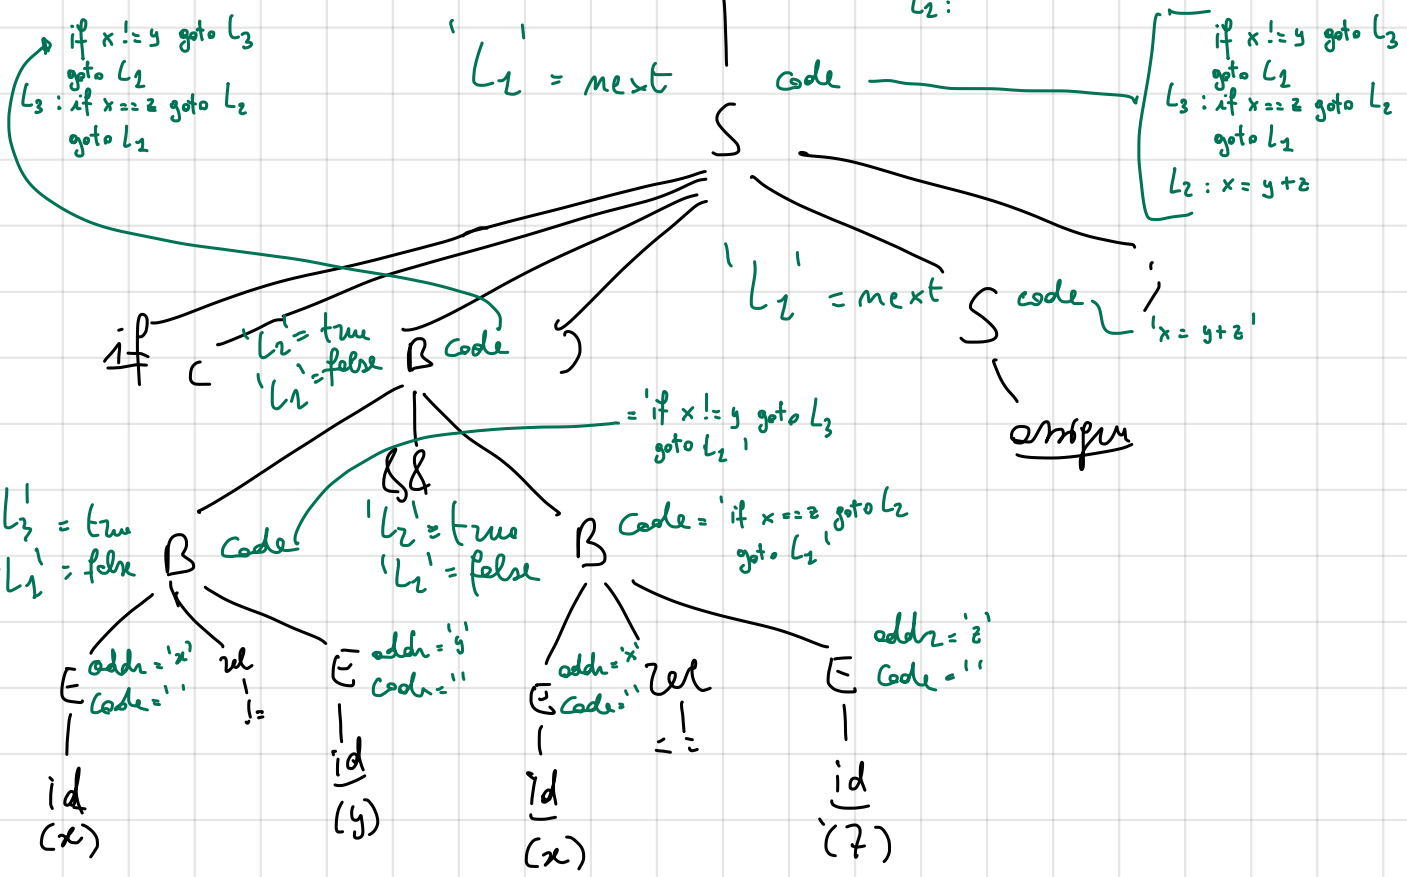 L2 :
if x != y goto L3
goto L1
L3 : if x == z goto L2
goto L1
'L1' = next
S
code
if x != y goto L3
goto L1
L3 : if x == z goto L2
goto L1
L2 : x = y + z
if
(
'L2' = true
'L1' = false
B
code
)
'L1' = next
S
code
'x = y + z'
;
assign
= 'if x != y goto L3
goto L1'
&&
L3' = true
L1' = false
B
code
'L2' = true
'L1' = false
B
code = 'if x == z goto L2
goto L1'
E
addr = 'x'
code = ''
rel
!=
E
addr = 'y'
code = ''
E
addr = 'x'
code = ''
rel
==
E
addr = 'z'
code = ''
id
(x)
id
(y)
id
(x)
id
(z)